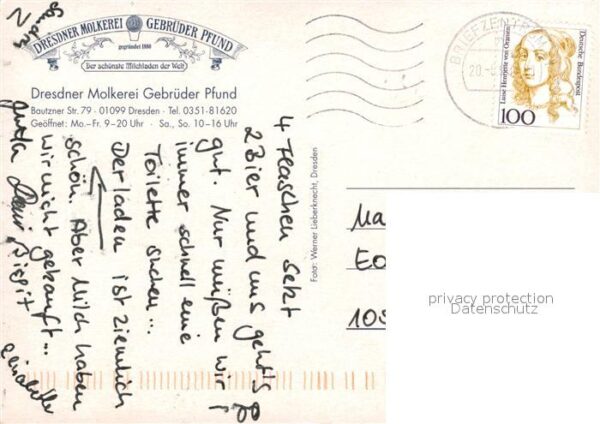 DRESDNER MOLKEREI GEBRÜDER PFUND
gegründet 1880
Der schönste Milchladen der Welt
Dresdner Molkerei Gebrüder Pfund
Bautzner Str. 79 · 01099 Dresden · Tel. 0351-81620
Geöffnet: Mo.–Fr. 9–20 Uhr · Sa., So. 10–16 Uhr
4 Flaschen Sekt
2 Bier und uns geht's
gut. Nur müßen wir
immer schnell eine
Toilette suchen...
Der Laden ist ziemlich
schön. Aber Milch haben
wir nicht gekauft...
Birgit
Foto: Werner Lieberknecht, Dresden
BRIEFZENTR
20.
Deutsche Bundespost
Luise Henriette von Oranien
100
Ma
Eo
105
privacy protection
Datenschutz